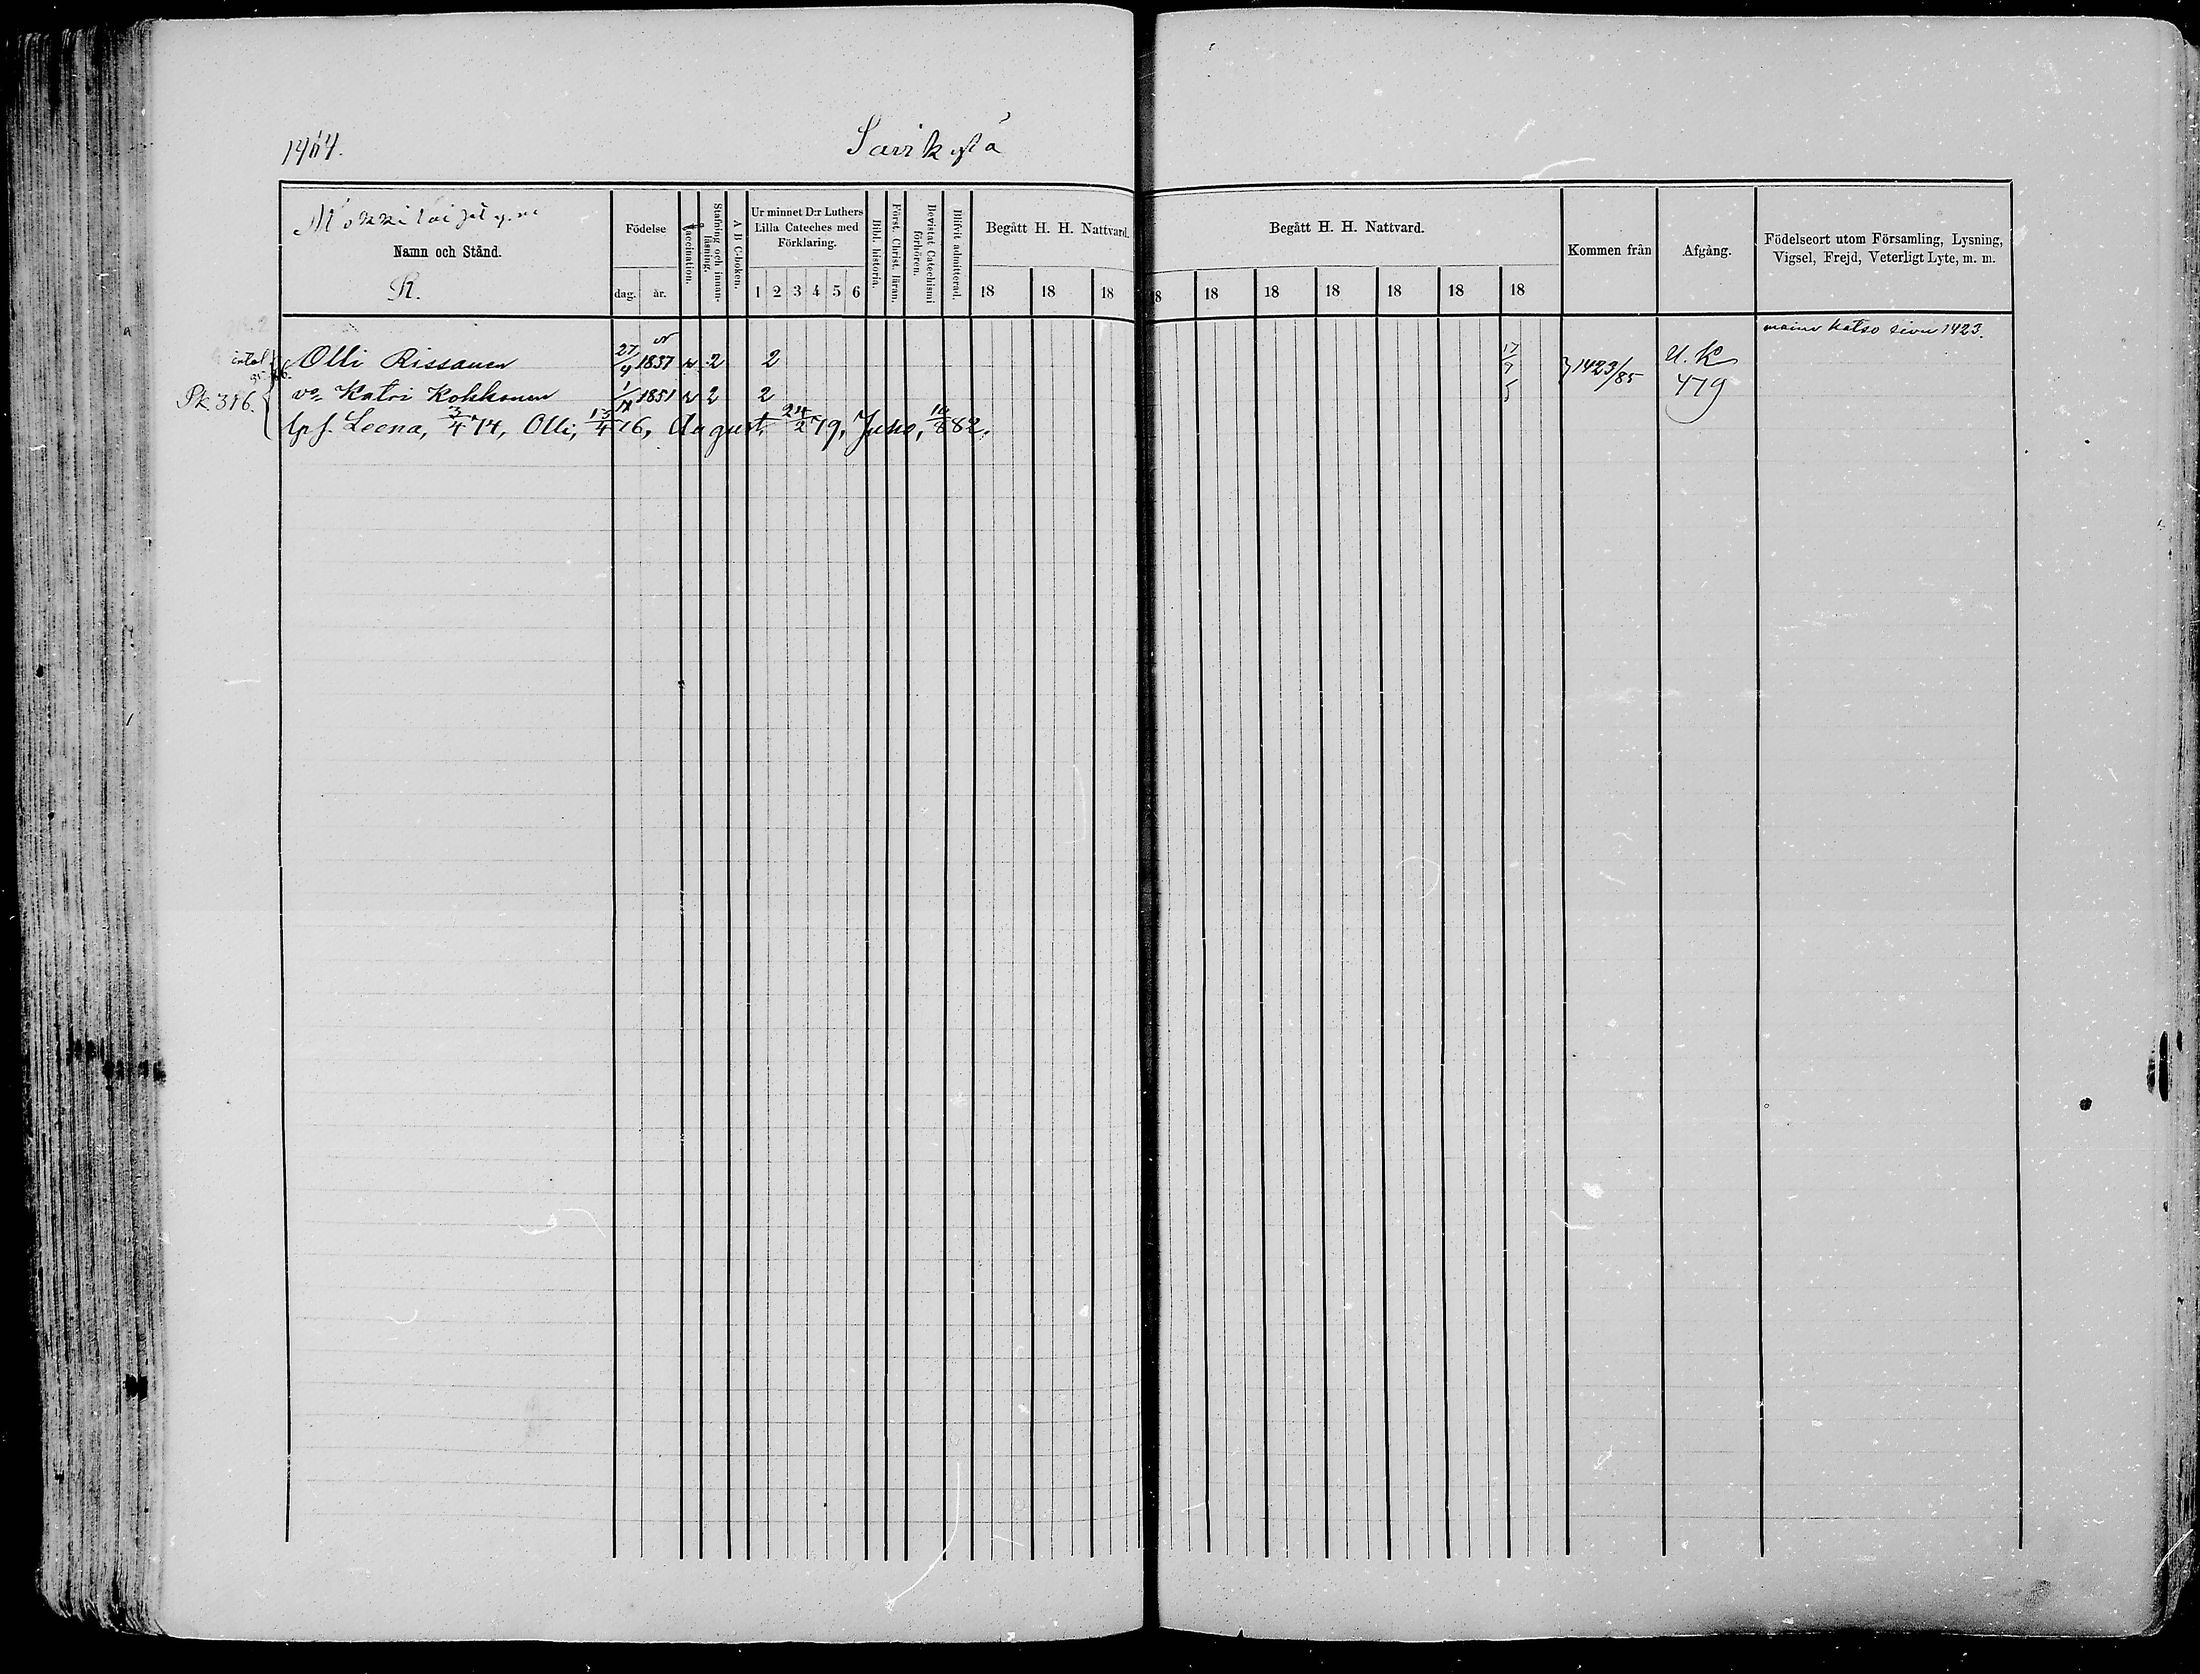 1464.
Savikylä
Namn och Stånd.
R.
Födelse
dag. år.
Vaccination.
Stafning och innanläsning.
A B C-boken.
Ur minnet D:r Luthers Lilla Cateches med Förklaring.
1 2 3 4 5 6
Bibl. historia.
Först. Christ. läran.
Bevistat Catechismi förhören.
Blifvit admitterad.
Begått H. H. Nattvard.
18 18 18
Begått H. H. Nattvard.
8 18 18 18 18 18 18
Kommen från
Afgång.
Födelseort utom Församling, Lysning, Vigsel, Frejd, Veterligt Lyte, m. m.
maine katso sivu 1423.
Olli Rissanen 27/4 1837 v 2 2 17/7 } 1423/85 U. K
Pk 316. vo Katri Kokkonen 1/11 1851 v 2 2 5 479
lps. Leena, 3/4 74, Olli, 13/4 76, August, 24/2 79, Juho, 10/8 82.